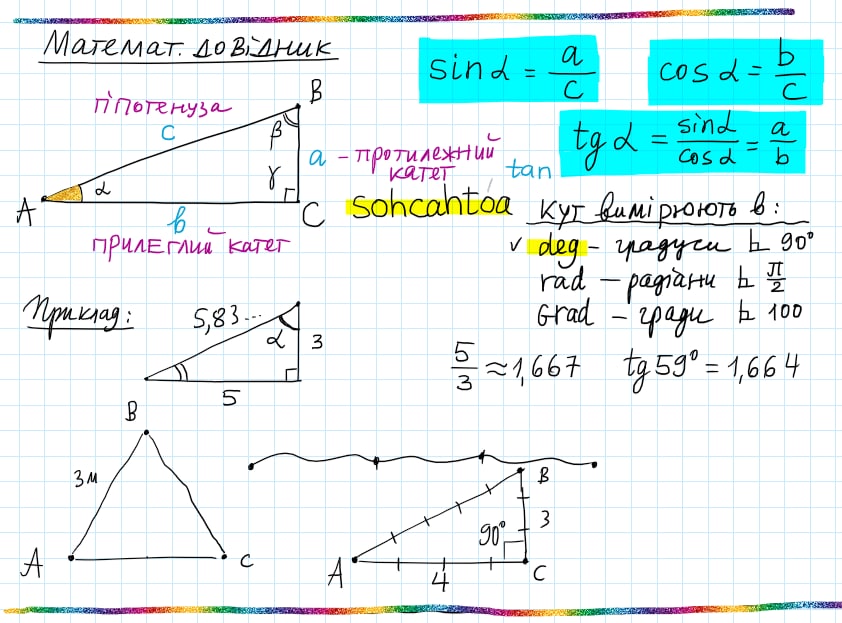 Математ. довідник
sin α = a/c
cos α = b/c
tg α = sin α/cos α = a/b
гіпотенуза
c
B
β
a - протилежний
катет
tan
γ
α
A
b
C
прилеглий катет
sohcahtoa
Кут вимірюють в:
✓ deg - градуси ⊾ 90°
rad - радіани ⊾ π/2
Grad - гради ⊾ 100
Приклад:
5,83...
α
3
5
5/3 ≈ 1,667
tg 59° = 1,664
B
3м
A
C
B
90°
3
A
4
C